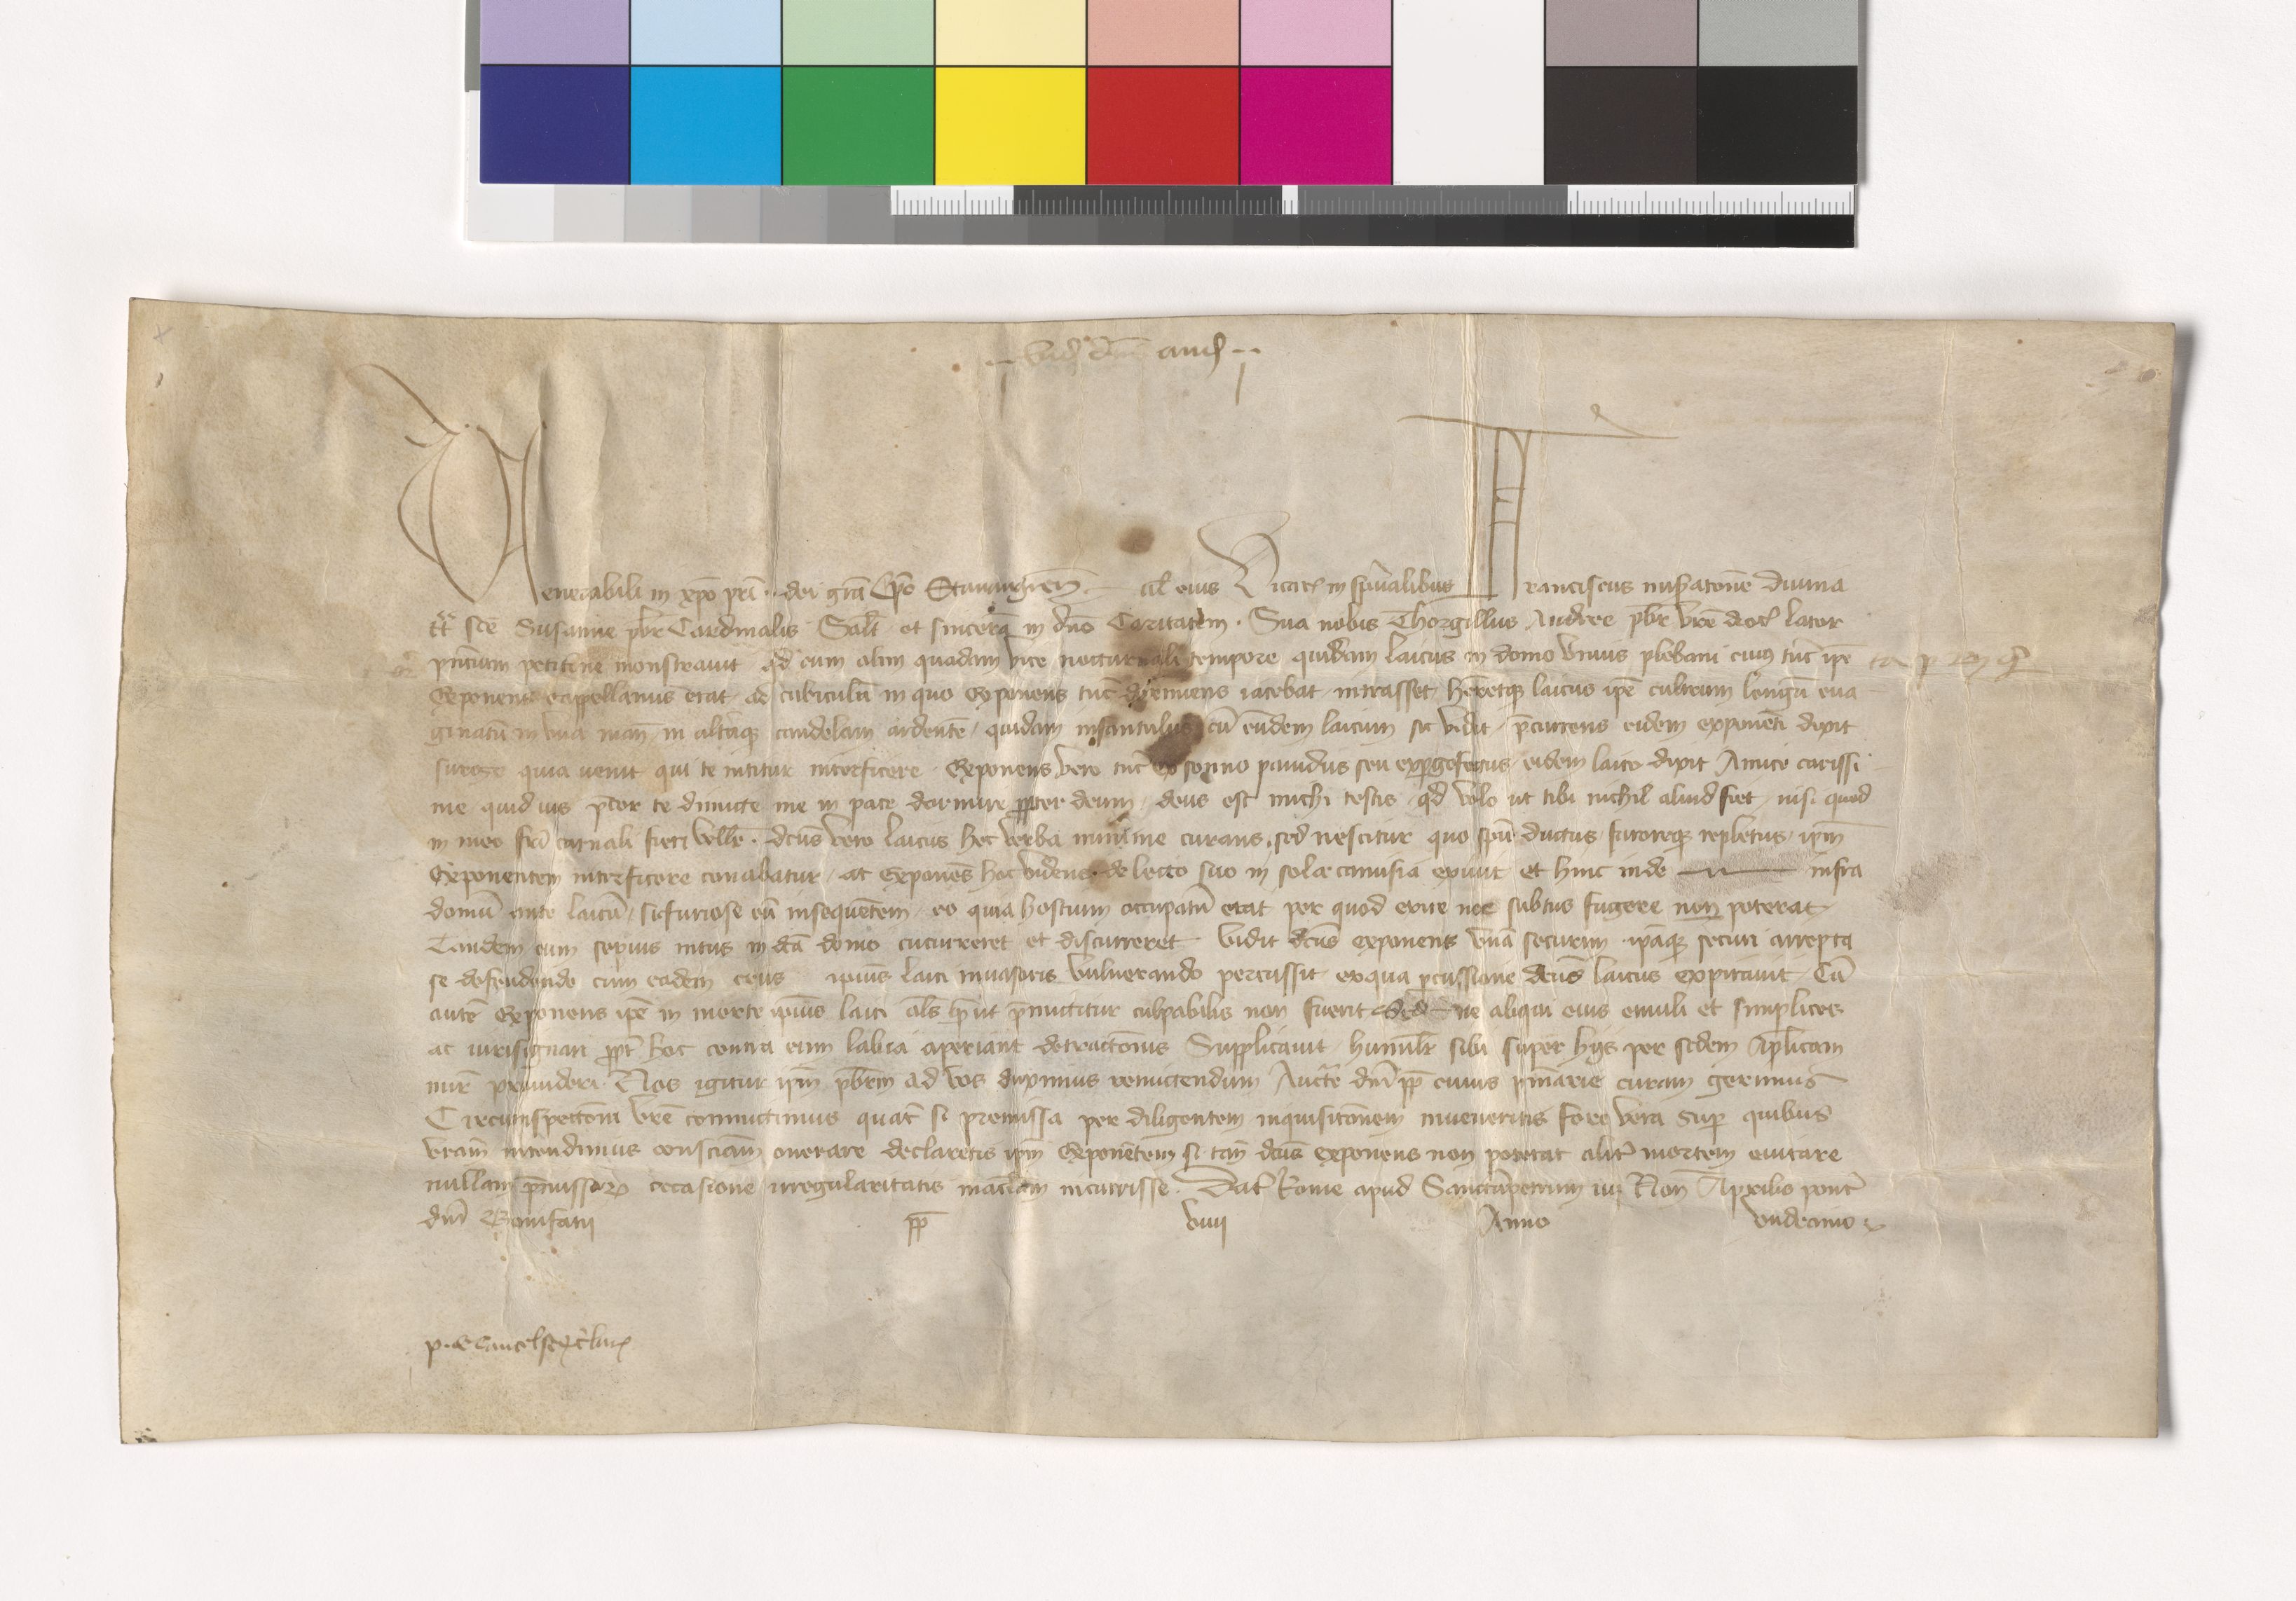 vid dnī aud
Venerabili in xpō prī · dei grā Epō Stauangren̄ · vel eius Vicar̄ in spūalibus Franciscus miseratōne diuina
tt sce Susanne pbr̄ Cardinalis Salt̄ et sincerā in dnō Caritatem · Sua nobis Thorgillus Andree pbr̄ vrē dioc̄ lator
pn̄tium petitōne monstrauit qd̄ cum olim quadam vice nocturnali tempore quidam laicus in domo vnius plebani cuiꝰ tūc ipē
Exponens cappellanus erat ad cubiculū in quo Exponens tūc dormiens iacebat intrasset hēretqꝫ laicus ipē cultrum longū eua
ginatū in vna manū in altāqꝫ candelam ardentē quidam infantulus cū eūdem laicum sic vidit p̄currens eidem exponēti dixit
surge quia uenit qui te nititur interficere Exponens vero tūc ex sonno pauidus seu exꝑgefactus eidem laico dixit Amice carissi
me quid uis p̄cor te dimicte me in pace dormire ꝓpter deum deus est michi testis qd̄ volo ut tibi nichil aliud fiet nisi quod
in meo frī carnali fieri vellē · dc̄us vero laicus hec verba minime curans sed nescitur quo spū ductus furoreqꝫ repletus ipm̄
Exponentem interficere conabatur at Exponēs hoc videns de lecto suo in sola camisia exiuit et hinc inde infra
domū ante laicū sic furiose eū insequētem eo quia hostium occupatū erat per quod exire nec subtus fugere non poterat
Tandem cum sepius intus in dc̄a domo cucurreret et discurreret vidit dc̄us exponens vnā securim ipāqꝫ securi arrepta
se defendendo cum eadem ipiūs laici inuasoris vulnerando percussit ex qua ꝑcussione dc̄us laicus expirauit Cū
autē Exponens ipē in morte ipiūs laici als̄ qm̄ ut p̄mictitur culpabilis non fuerit Sed ne aliqui eius emuli et simplices
ac iurisignari ꝓpt̄ hoc contra eum labia aperiant detractōnis Supplicauit humilr̄ sibi super hijs per sedem Apl̄icam
miseri prouideri · Nos igitur ipm̄ pbr̄m ad vos duximus remictendum Auctē dnī pp̄ cuius pn̄iarie curam gerimus
Circumspectōni vrē committimus quat̄ si premissa per diligentem inquisitōnem inueneritis fore vera sup̄ quibus
vrām intendimus consciām onerare declaretis ipm̄ Exponētem si tam̄ dc̄us exponens non poterat alit̄ mortem euitare
nullam p̄missorꝝ occasione irregularitatis maculam incurrisse · Dat̄ Rome apud Sanctūpetrum iij Non̄ Aprilis pont̄
dnī Bonifatii pp̄ viiij Anno vndecimo